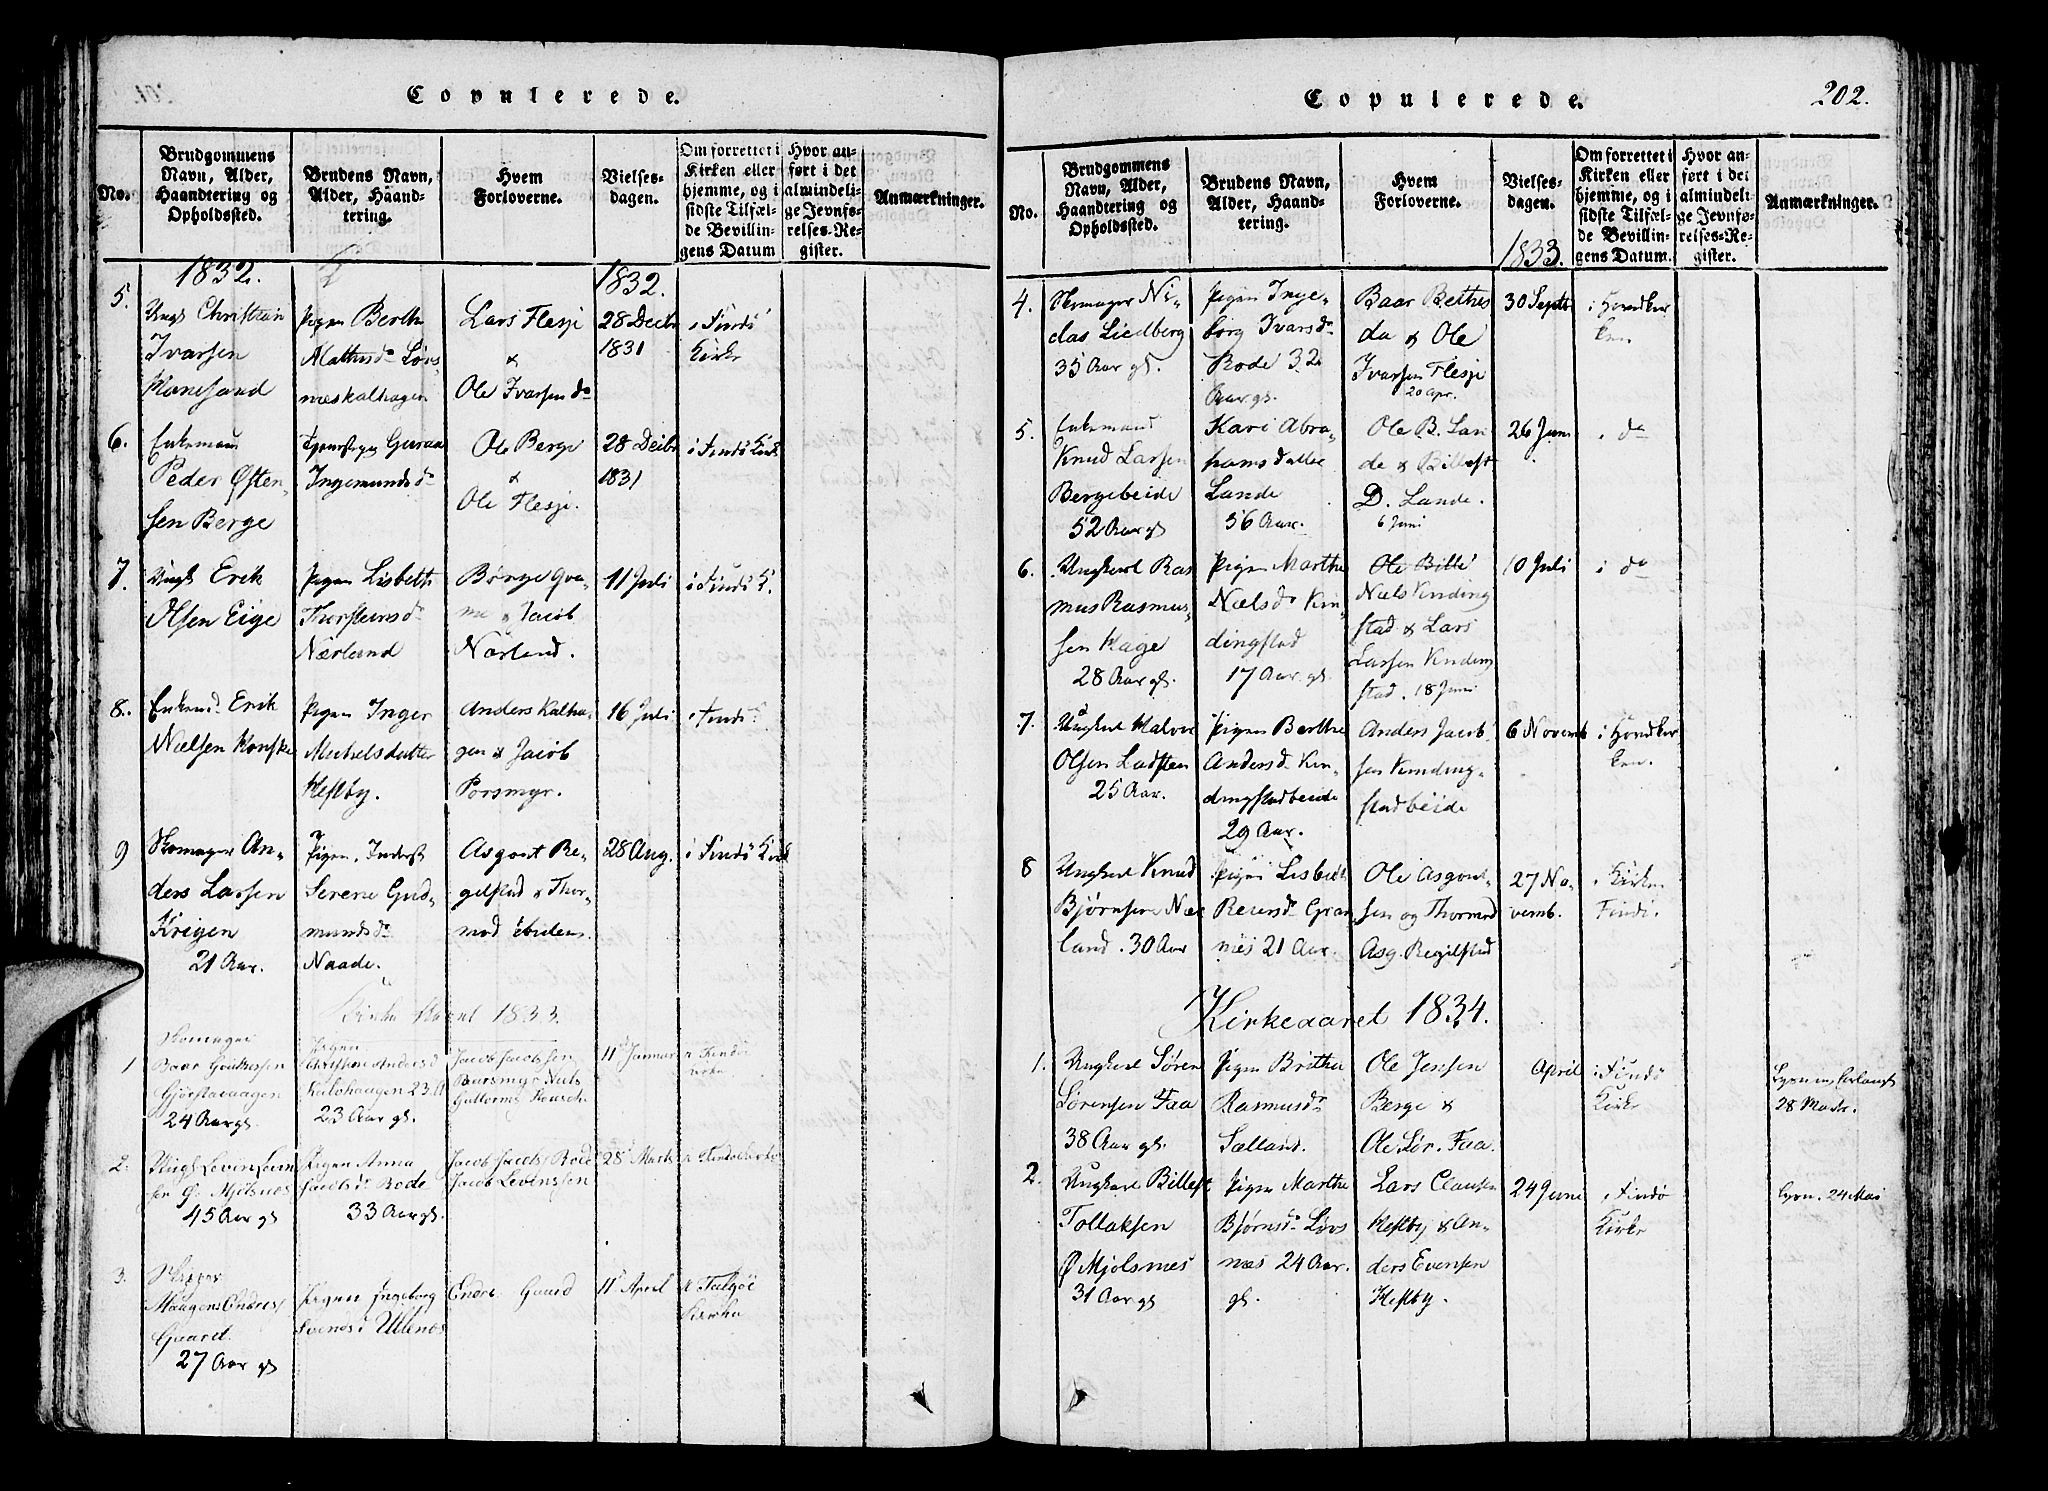 Copulerede.
No.
Brudgommens Navn, Alder, Haandtering og Opholdssted.
Brudens Navn, Alder, Haandtering.
Hvem Forloverne.
Vielsesdagen.
Om forrettet i Kirken eller hjemme, og i sidste Tilfælde Bevillingens Datum
Hvor anført i det almindelige Jevnførelses-Register.
Anmærkninger.
1832.
1832.
5.
Ungk Christian
Ivarsen
Pigen Berthe
Lars Flesje
&
Ole Ivarsen do
28 Decbr
1831
i Findö
Kirke
6.
Enkemand
Peder Østen-
sen Berge
Ingemundsdr
Ole Berge
&
Ole Flesje.
28 Decbr
1831
i Findö Kirk
7.
Ungk Erik
Olsen Eige
Pigen Lisbeth
Thorsteinsdr
Nærland
Børge Gra-
nes & Jacob
Nærland.
11 Juli
i Findö K.
8.
Enkemd. Erik
Nielsen
Pigen Inger
Michelsdatter
Hesbÿ.
Anders Kalha-
gen & Jacob
Porsmyr.
16 Juli
i Findö
9
Skomager An-
ders Larsen
Krigen
21 Aar.
Pigen
Serene Gud-
mundsdr
Naade.
Asgout Re-
gelstad & Thor-
mod ibidem.
28 Aug.
i Findö Kirk
Kirke Aaret 1833.
1
Skomager
24 Aar gl
Pigen
Christine Andersd
Kalahaagen 23 A
23 Aar gl.
Jacob Jacobsen
Porsmyr Niels
11 Januar
i Findöe
Kirke
2.
45 Aar gl
Pigen Anna
Jacobsdr Rode
33 Aar gl.
Jacob Jacobs Rode
Jacob Levinssen
28 Marts
i Findöe Kirke
3.
Skipper
Maugens Endres
Gaard.
27 Aar gl
Pigen Ingeborg
Svendsd Ullenes
Endre Gaard
11 April
i Talgöe
Kirke
Copulerede.
202.
No.
Brudgommens Navn, Alder, Haandtering og Opholdssted.
Brudens Navn, Alder, Haandtering.
Hvem Forloverne.
Vielsesdagen.
Om forrettet i Kirken eller hjemme, og i sidste Tilfælde Bevillingens Datum.
Hvor anført i det almindelige Jevnførelses-Register.
Anmærkninger.
1833.
4.
Skomager Ni-
Liedberg
35 Aar gl.
Pigen Inge-
borg Ivarsdr
Rode 32
Aar gl.
Baar Bethes
da & Ole
Ivarsen Flesje
20 Apr.
30 Septbr
i Hovedkir
ken.
5.
Enkemand
Knud Larsen
Bergebeide
52 Aar gl
Kari Abra-
hamsdatter
Lande
36 Aar.
Ole B. Lan
de & Billest
D. Lande.
6 Juni
26 Juni
i do
6.
Ungkarl Ras
mus Rasmus-
sen Hage
28 Aar gl.
Pigen Marthe
Nielsdr Kin-
dingstad
17 Aar gl.
Ole Bille
Niels Kinding
stad & Lars
Larsen Kinding
stad. 18 Juni
10 Juli
i do
7.
Ungkarl Halvor
Olsen Ladsten
25 Aar.
Pigen Berthe
Andersdr Kin-
dingstadbeide
29 Aar.
Anders Jacob
sen Kinding-
stadbeide
6 Novemb
i Hovedkir
ken.
8
Ungkarl Knud
Bjørnsen Nær
land. 30 Aar
Pigen Lisbeth
Reiersdr Gran
nes 21 Aar.
Ole Asgout-
sen og Thormod
Asg. Regilstad
27 No-
vemb.
i Kirke
Findö.
Kirkeaaret 1834.
1.
Ungkarl Søren
Sørensen Faa
38 Aar gl.
Pigen Brithe
Rasmusdr
Sælland.
Ole Jensen
Berge &
Ole Sør. Faa.
April
i Findö
Kirke
28 Marts.
2.
Ungkarl Billest
Tollaksen
Ø Mjølsnes
31 Aar gl
Pigen Marthe
Bjørnsdr Løvs
næs 24 Aar.
gl.
Lars Clausen
Hesbÿ & An-
ders Evensen
Hesbÿ.
24 Juni
i Findö
Kirke
Lysn. 24 Mai